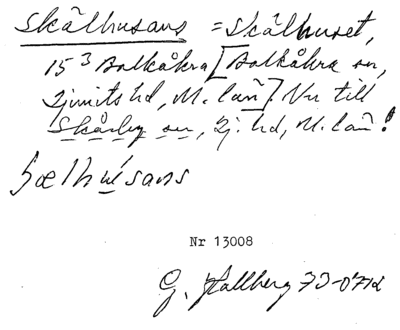 Skälhusans = Skälhuset,
15³ Balkåkra [Balkåkra sn,
Ljunits hd, M. län]. Nu till
Skårby sn, Lj. hd, M. län!
Nr 13008
G. Hallberg